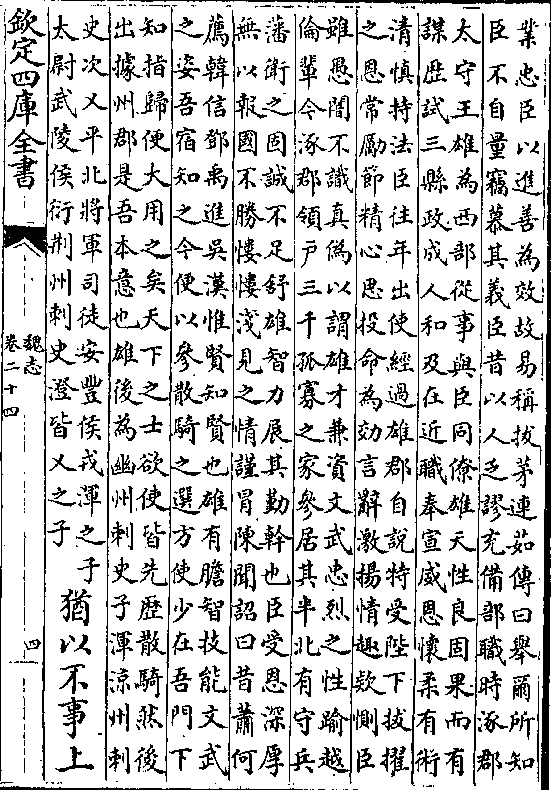 業忠臣以進善為效故易稱拔茅連茹傳曰舉爾所知
臣不自量竊慕其義臣昔以人乏謬充備部職時涿郡
太守王雄為西部從事與臣同僚雄天性良固果而有
謀歴試三縣政成人和及在近職奉宣威恩懷柔有術
清慎持法臣往年出使經過雄郡自說特受陛下拔擢
之恩常勵節精心思投命為効言辭激揚情趣款惻臣
雖愚闇不識真偽以謂雄才兼資文武忠烈之性踰越
倫輩今涿郡領戸三千孤寡之家參居其半北有守兵
藩衛之固誠不足舒雄智力展其勤幹也臣受恩深厚
無以報國不勝慺慺淺見之情謹冒陳聞詔曰昔蕭何
薦韓信鄧禹進吳漢惟賢知賢也雄有膽智技能文武
之姿吾宿知之今便以參散騎之選方使少在吾門下
知指歸便大用之矣天下之士欲使皆先歴散騎然後
出據州郡是吾本意也雄後為幽州刺史子渾涼州刺
史次乂平北將軍司徒安豐侯戎渾之子
太尉武陵侯衍荆州刺史澄皆乂之子
猶以不事上
欽定四庫全書
魏志
卷二十四
四